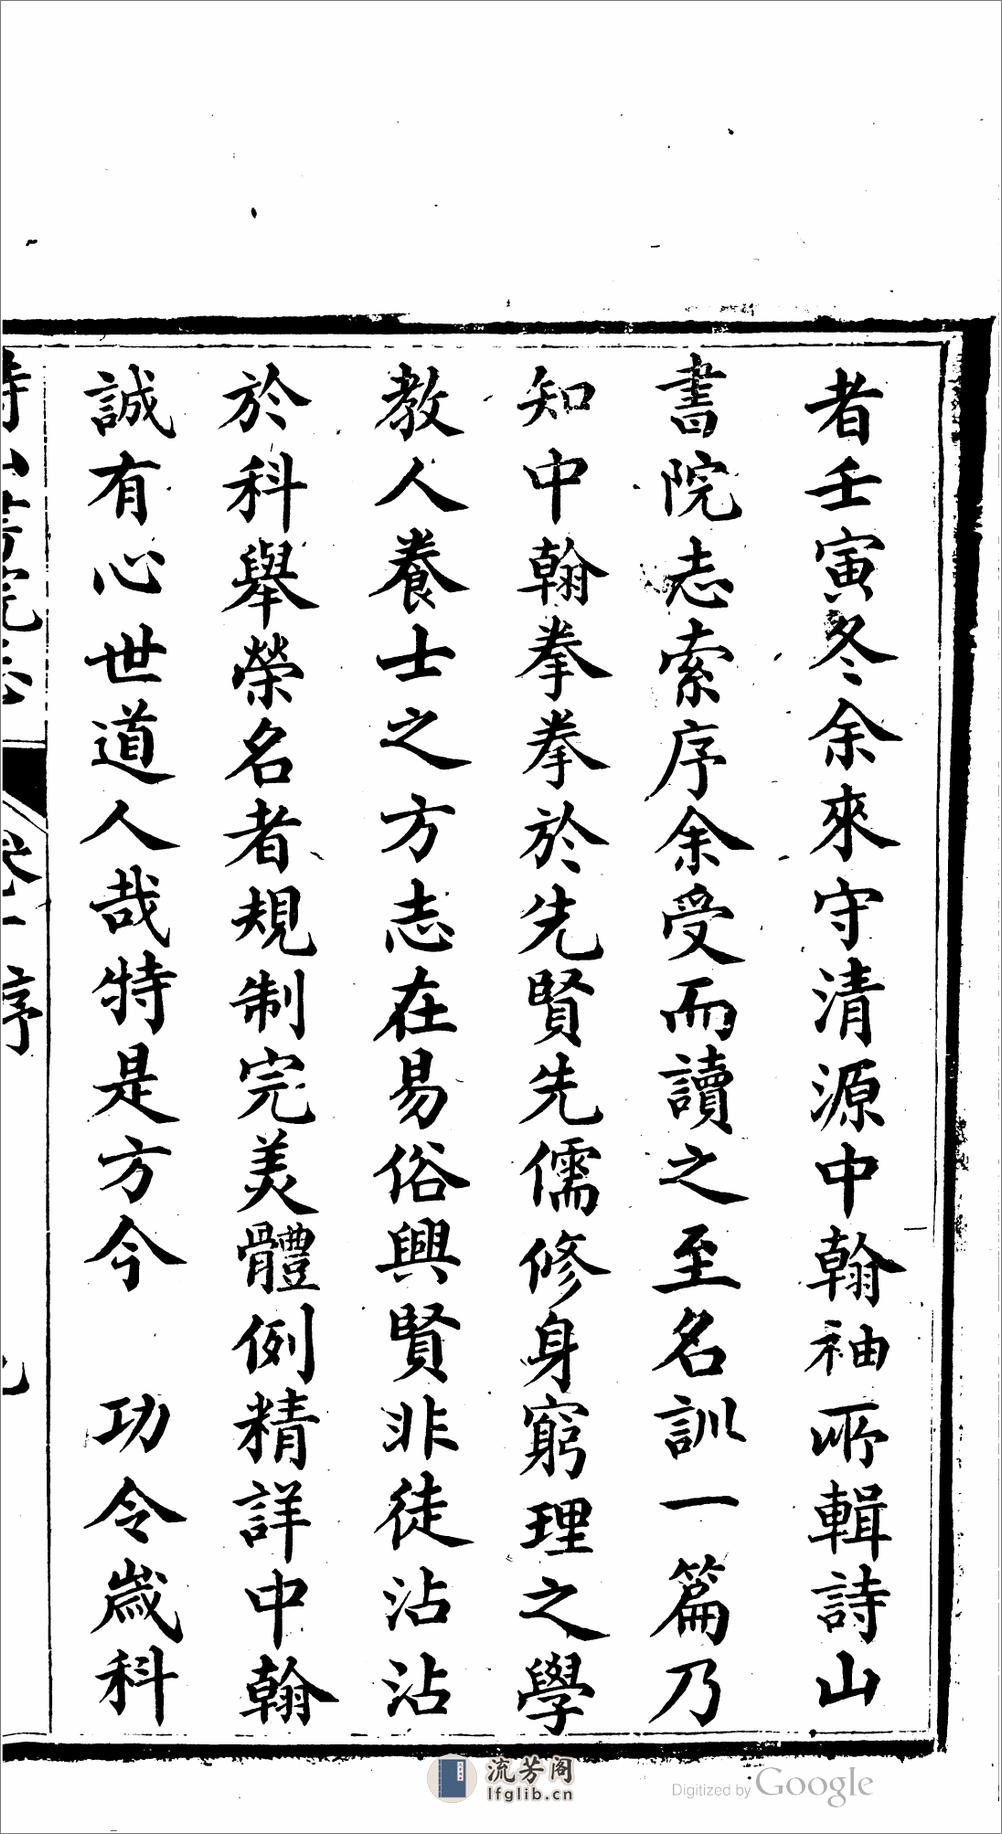 者壬寅冬余來守清源中翰袖所輯詩山
書院志索序余受而讀之至名訓一篇乃
知中翰拳拳於先賢先儒修身窮理之學
教人養士之方志在易俗興賢非徒沾沾
於科舉榮名者規制完美體例精詳中翰
誠有心世道人哉特是方今　功令歲科
詩山書院志
序
流芳阁
lfglib.cn
Digitized by Google